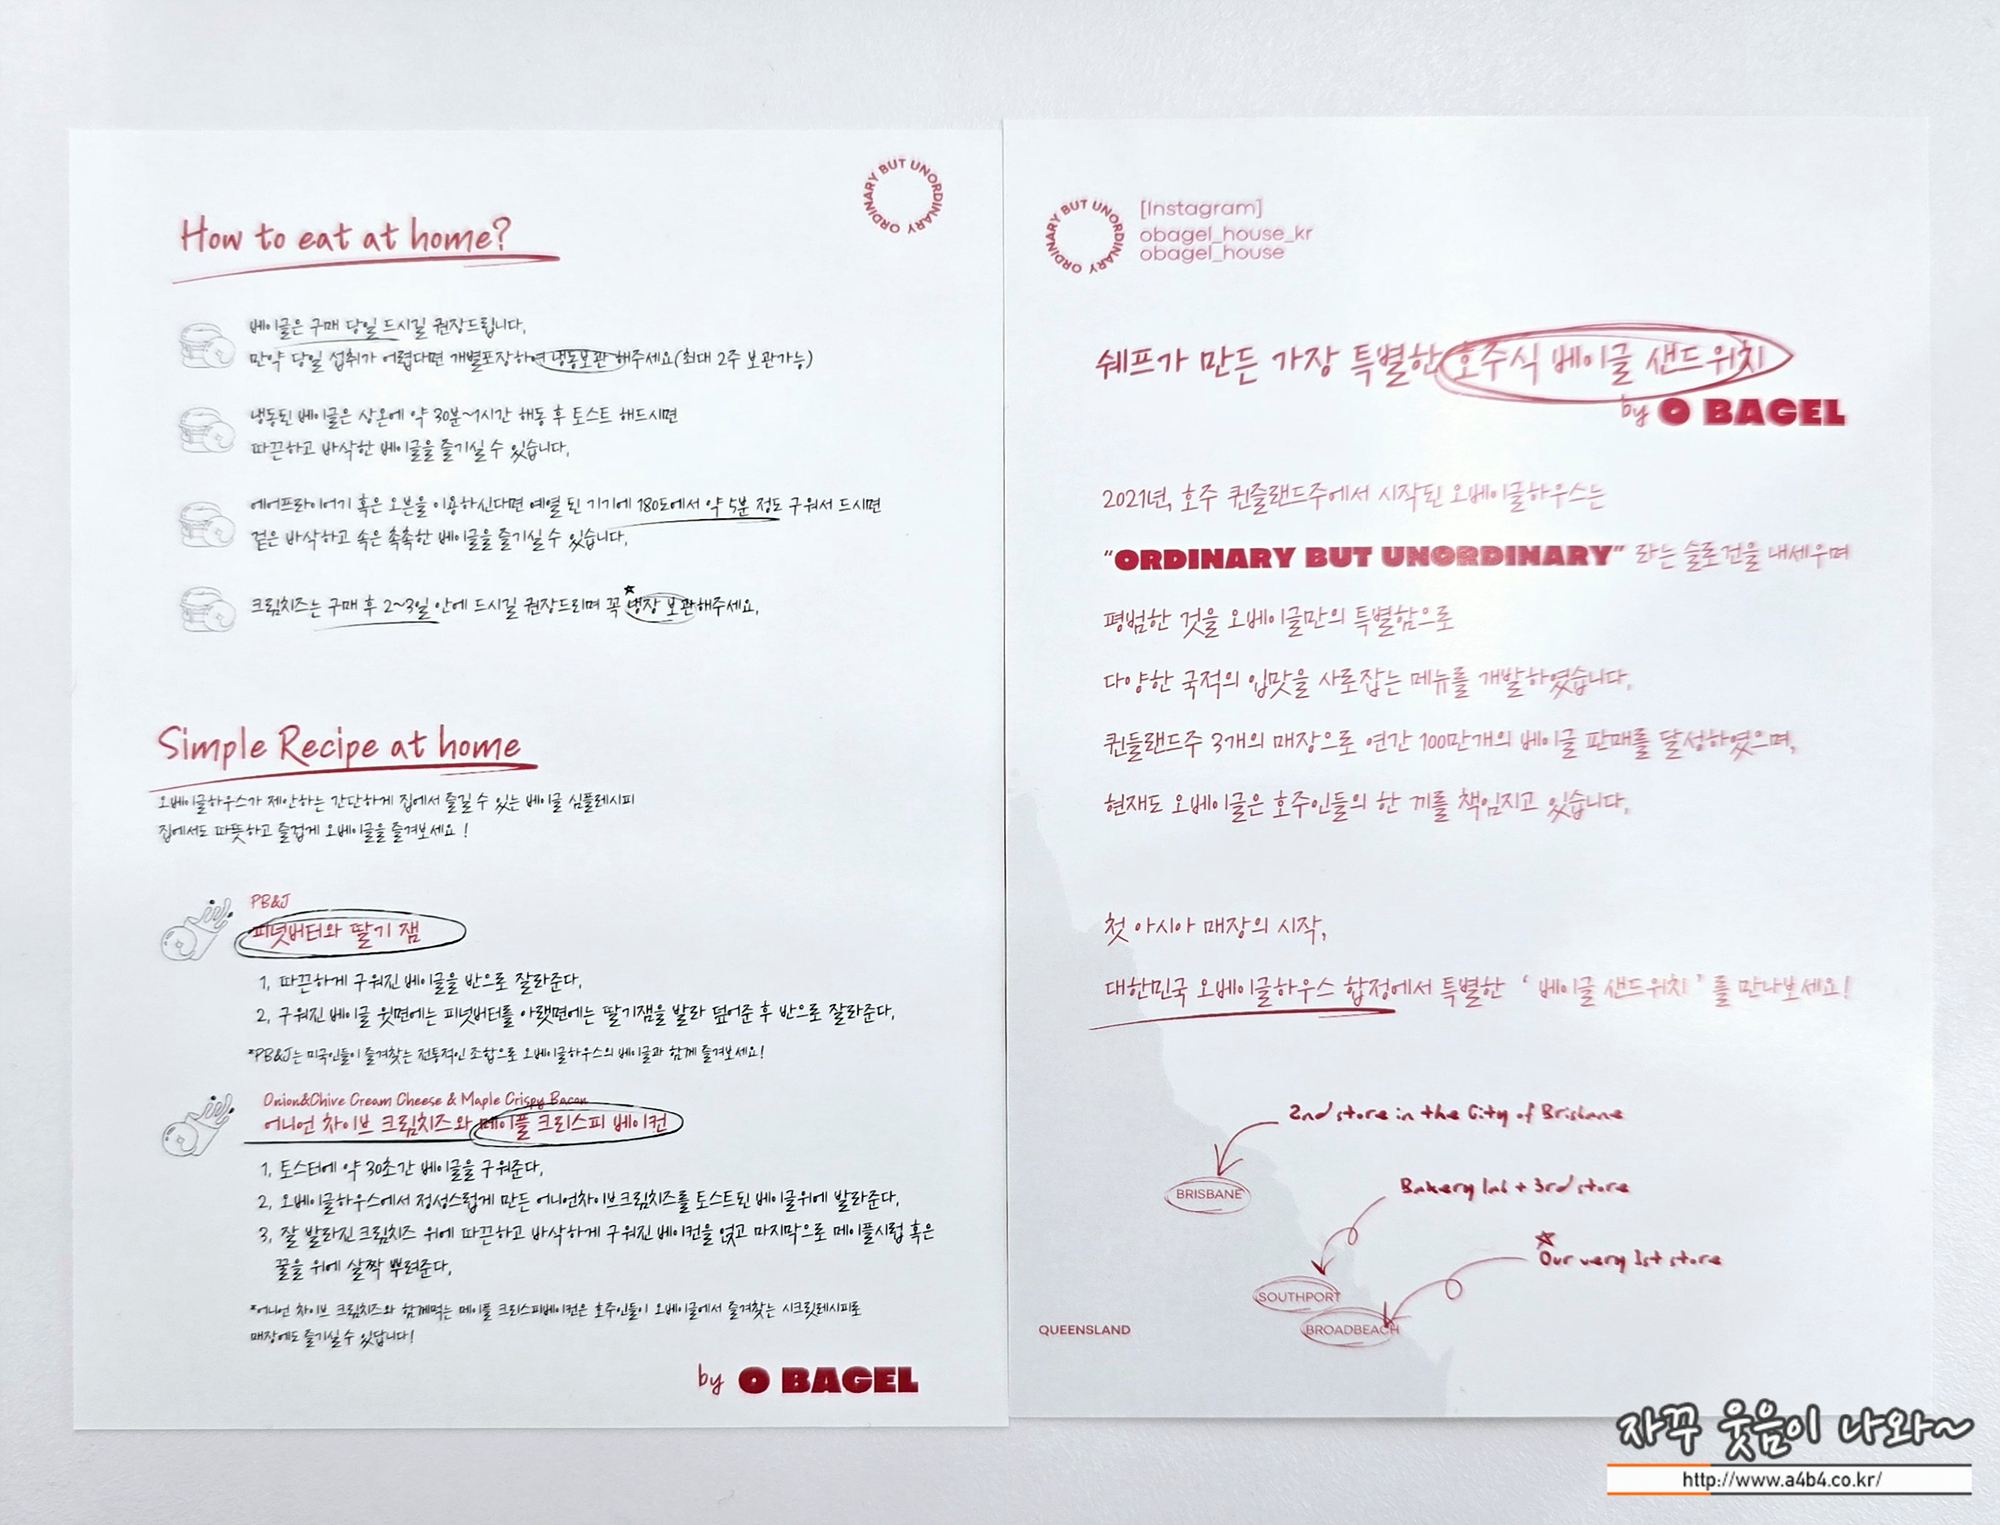 ORDINARY BUT UNORDINARY
How to eat at home?
베이글은 구매 당일 드시길 권장드립니다.
만약 당일 섭취가 어렵다면 개별포장하여 냉동보관 해주세요(최대 2주 보관가능)
냉동된 베이글은 상온에 약 30분~1시간 해동 후 토스트 해드시면
따끈하고 바삭한 베이글을 즐기실 수 있습니다.
에어프라이어기 혹은 오븐을 이용하신다면 예열 된 기기에 180도에서 약 5분 정도 구워서 드시면
겉은 바삭하고 속은 촉촉한 베이글을 즐기실 수 있습니다.
크림치즈는 구매 후 2~3일 안에 드시길 권장드리며 꼭 냉장 보관해주세요.
Simple Recipe at home
오베이글하우스가 제안하는 간단하게 집에서 즐길 수 있는 베이글 심플레시피
집에서도 따뜻하고 즐겁게 오베이글을 즐겨보세요 !
PB&J
피넛버터와 딸기 잼
1. 따끈하게 구워진 베이글을 반으로 잘라준다.
2. 구워진 베이글 윗면에는 피넛버터를 아랫면에는 딸기잼을 발라 덮어준 후 반으로 잘라준다.
*PB&J는 미국인들이 즐겨찾는 전통적인 조합으로 오베이글하우스의 베이글과 함께 즐겨보세요!
Onion&Chive Cream Cheese & Maple Crispy Bacon
어니언 차이브 크림치즈와 메이플 크리스피 베이컨
1. 토스터에 약 30초간 베이글을 구워준다.
2. 오베이글하우스에서 정성스럽게 만든 어니언차이브크림치즈를 토스트된 베이글위에 발라준다.
3. 잘 발라진 크림치즈 위에 따끈하고 바삭하게 구워진 베이컨을 얹고 마지막으로 메이플시럽 혹은
꿀을 위에 살짝 뿌려준다.
*어니언 차이브 크림치즈와 함께먹는 메이플 크리스피베이컨은 호주인들이 오베이글에서 즐겨찾는 시크릿레시피로
매장에도 즐기실 수 있답니다!
by O BAGEL
ORDINARY BUT UNORDINARY
[Instagram]
obagel_house_kr
obagel_house
쉐프가 만든 가장 특별한 호주식 베이글 샌드위치
by O BAGEL
2021년, 호주 퀸즐랜드주에서 시작된 오베이글하우스는
"ORDINARY BUT UNORDINARY" 라는 슬로건을 내세우며
평범한 것을 오베이글만의 특별함으로
다양한 국적의 입맛을 사로잡는 메뉴를 개발하였습니다.
퀸들랜드주 3개의 매장으로 연간 100만개의 베이글 판매를 달성하였으며,
현재도 오베이글은 호주인들의 한 끼를 책임지고 있습니다.
첫 아시아 매장의 시작,
대한민국 오베이글하우스 합정에서 특별한 ' 베이글 샌드위치 ' 를 만나보세요!
2nd store in the City of Brisbane
BRISBANE
Bakery lab + 3rd store
Our very 1st store
SOUTHPORT
BROADBEACH
QUEENSLAND
자꾸 웃음이 나와~
http://www.a4b4.co.kr/